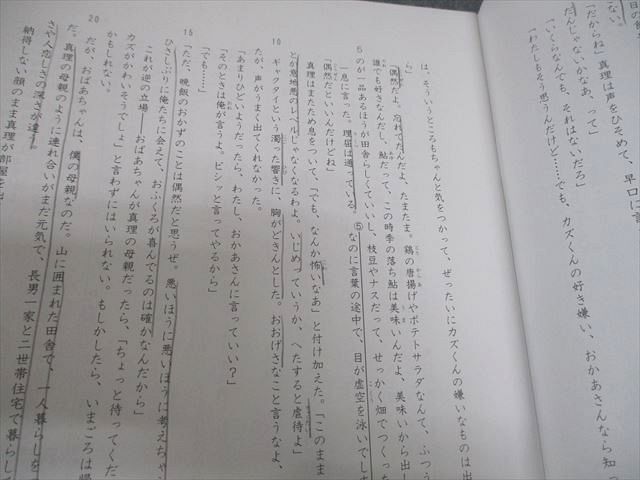 ない。
「だからね」真理は声をひそめて、早口に言
だんじゃないかなあ、って」
「いくらなんでも、それはないだろ」
「わたしもそう思うんだけど……でも、カズくんの好き嫌い、おかあさんなら知
は、そういうところもちゃんと気をつかって、ぜったいにカズくんの嫌いなものは出
ら」
「偶然だよ、忘れてたんだよ、たまたま。鶏の唐揚げやポテトサラダなんて、ふつう
誰でも好きなんだし、鮎だって、この時季の落ち鮎は美味いんだよ、美味いから出し
5 のが一品あるほうが田舎らしくていいし、枝豆やナスだって、せっかく畑でつくった
一息に言った。理屈は通っている。⑤なのに言葉の途中で、目が虚空を泳いでしま
「偶然だといいんだけどね」
真理はまたため息をついて、「でも、なんか怖いなあ」と付け加えた。「このまま
とか意地悪のレベルじゃなくなるわよ。いじめっていうか、へたすると虐待よ」
10 ギャクタイという濁った響きに、胸がどきんとした。おおげさなこと言うなよ、
たが、声がうまく出てくれなかった。
「あまりひどいようだったら、わたし、おかあさんに言っていい？」
「そのときは俺が言うよ。ビシッと言ってやるから」
「でも……」
15 「ただ、晩飯のおかずのことは偶然だと思うぜ。悪いほうに悪いほうに考えちゃ
ひさしぶりに俺たちに会えて、おふくろが喜んでるのは確かなんだから」
これが逆の立場――おばあちゃんが真理の母親だったら、「ちょっと待ってくだ
カズがかわいそうでしょ」と言わずにはいられない。もしかしたら、いまごろは帰
かもしれない。
20 だが、おばあちゃんは、僕の母親なのだ。山に囲まれた田舎で、一人暮らしを
だ。真理の母親のように連れ合いがまだ元気で、長男一家と二世帯住宅で暮らして
さや人恋しさの深さが違う。
納得しない顔のまま真理が部屋を出